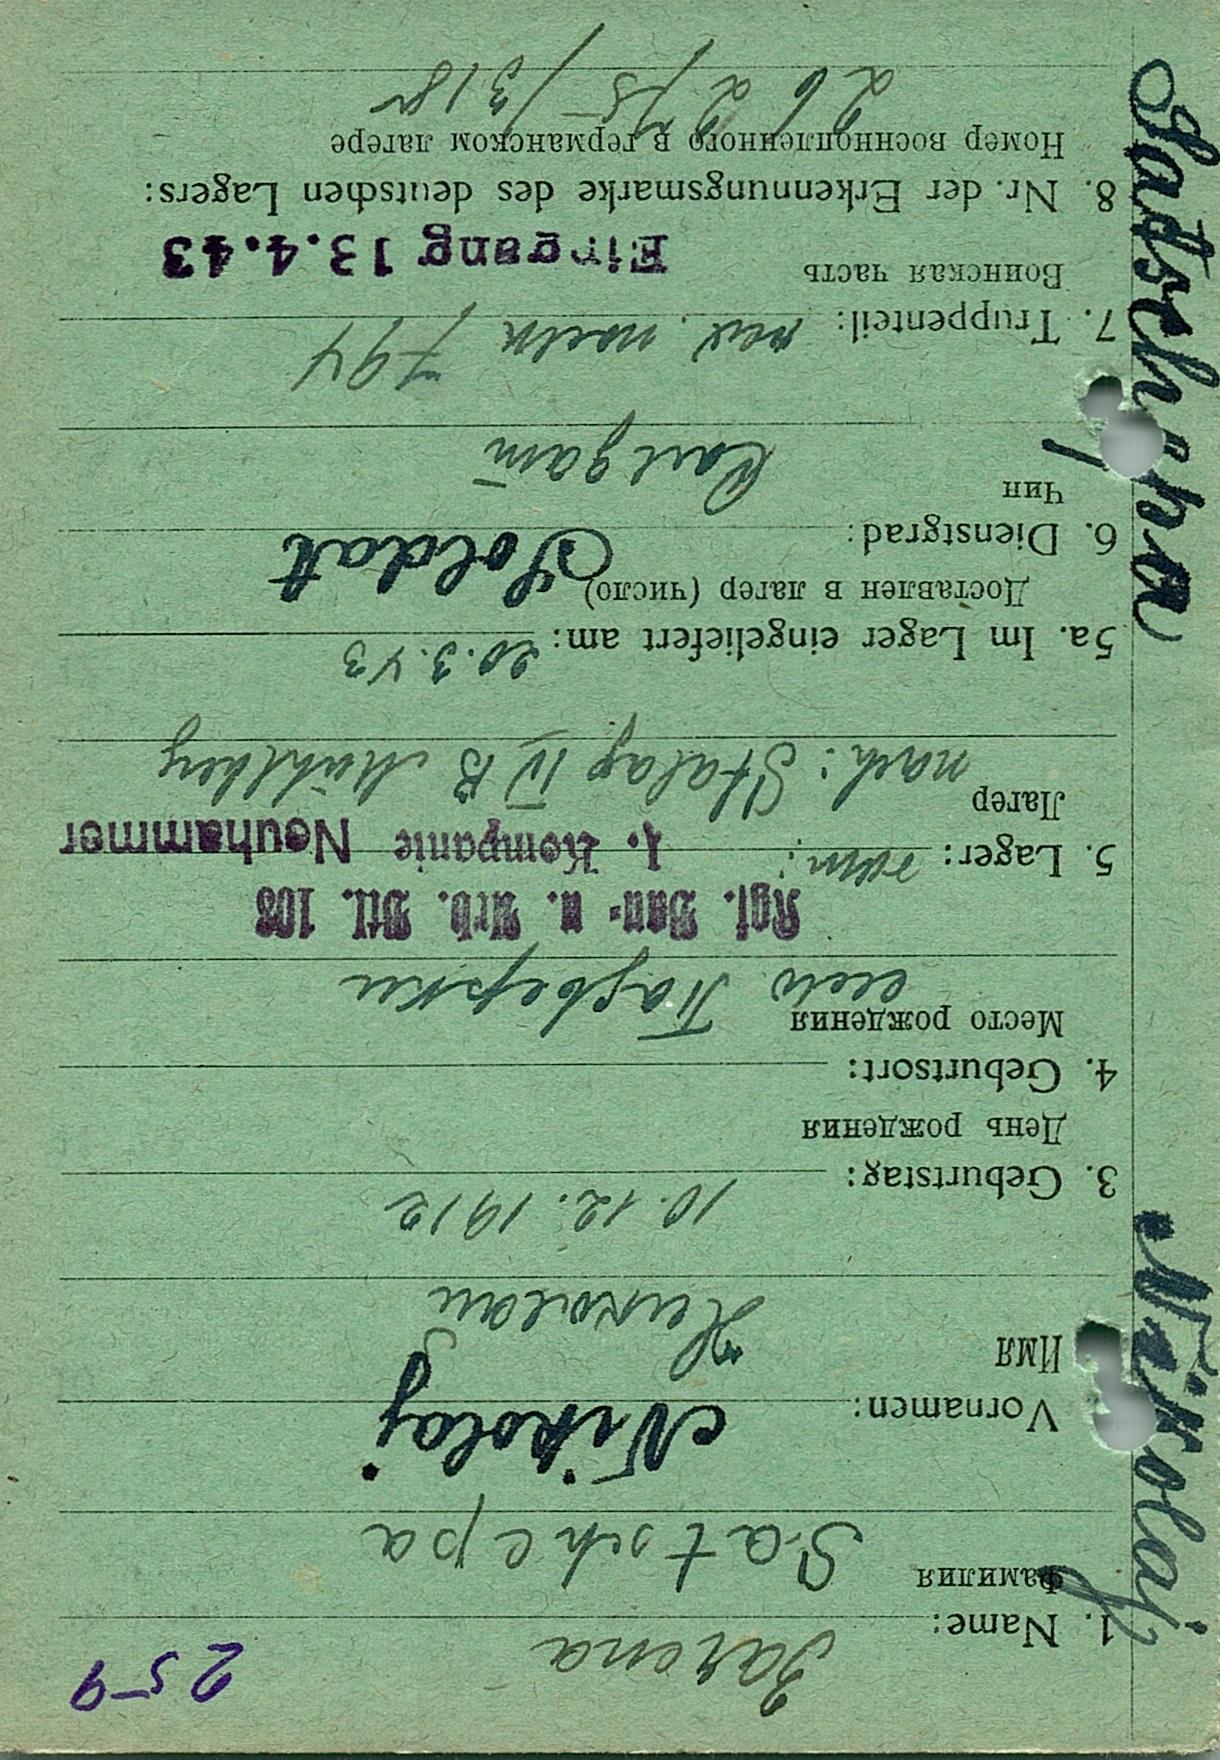 259
1. Name: Зачепа
Фамилия
Satschepa
Vornamen: Nikolaj
Имя
Николай
3. Geburtstag: 10.12.1912
День рождения
4. Geburtsort:
Место рождения
село
Rgt. Bau- u. Arb. Btl. 108
5. Lager: vom: 1. Kompanie Neuhammer
Лагер
nach: Stalag IV B Mühlberg
5a. Im Lager eingeliefert am: 20.3.43
Доставлен в лагер (число)
6. Dienstgrad: Soldat
Чин
7. Truppenteil: 794
Воинская часть
Eingang 13.4.43
8. Nr. der Erkennungsmarke des deutschen Lagers:
Номер военнопленного в германском лагере
26275/318
Satschepa Nikolaj